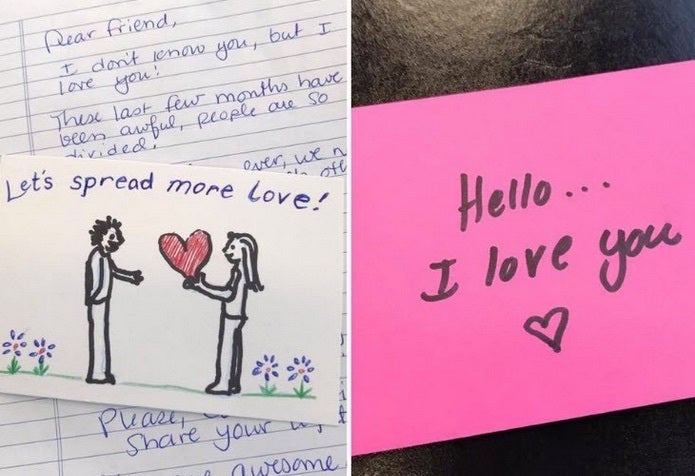 Dear friend,
I don't know you, but I
love you!
These last few months have
been awful, people are so
divided!
over, we
Let's spread more love!
Please,
Share your
awesome
Hello...
I love you